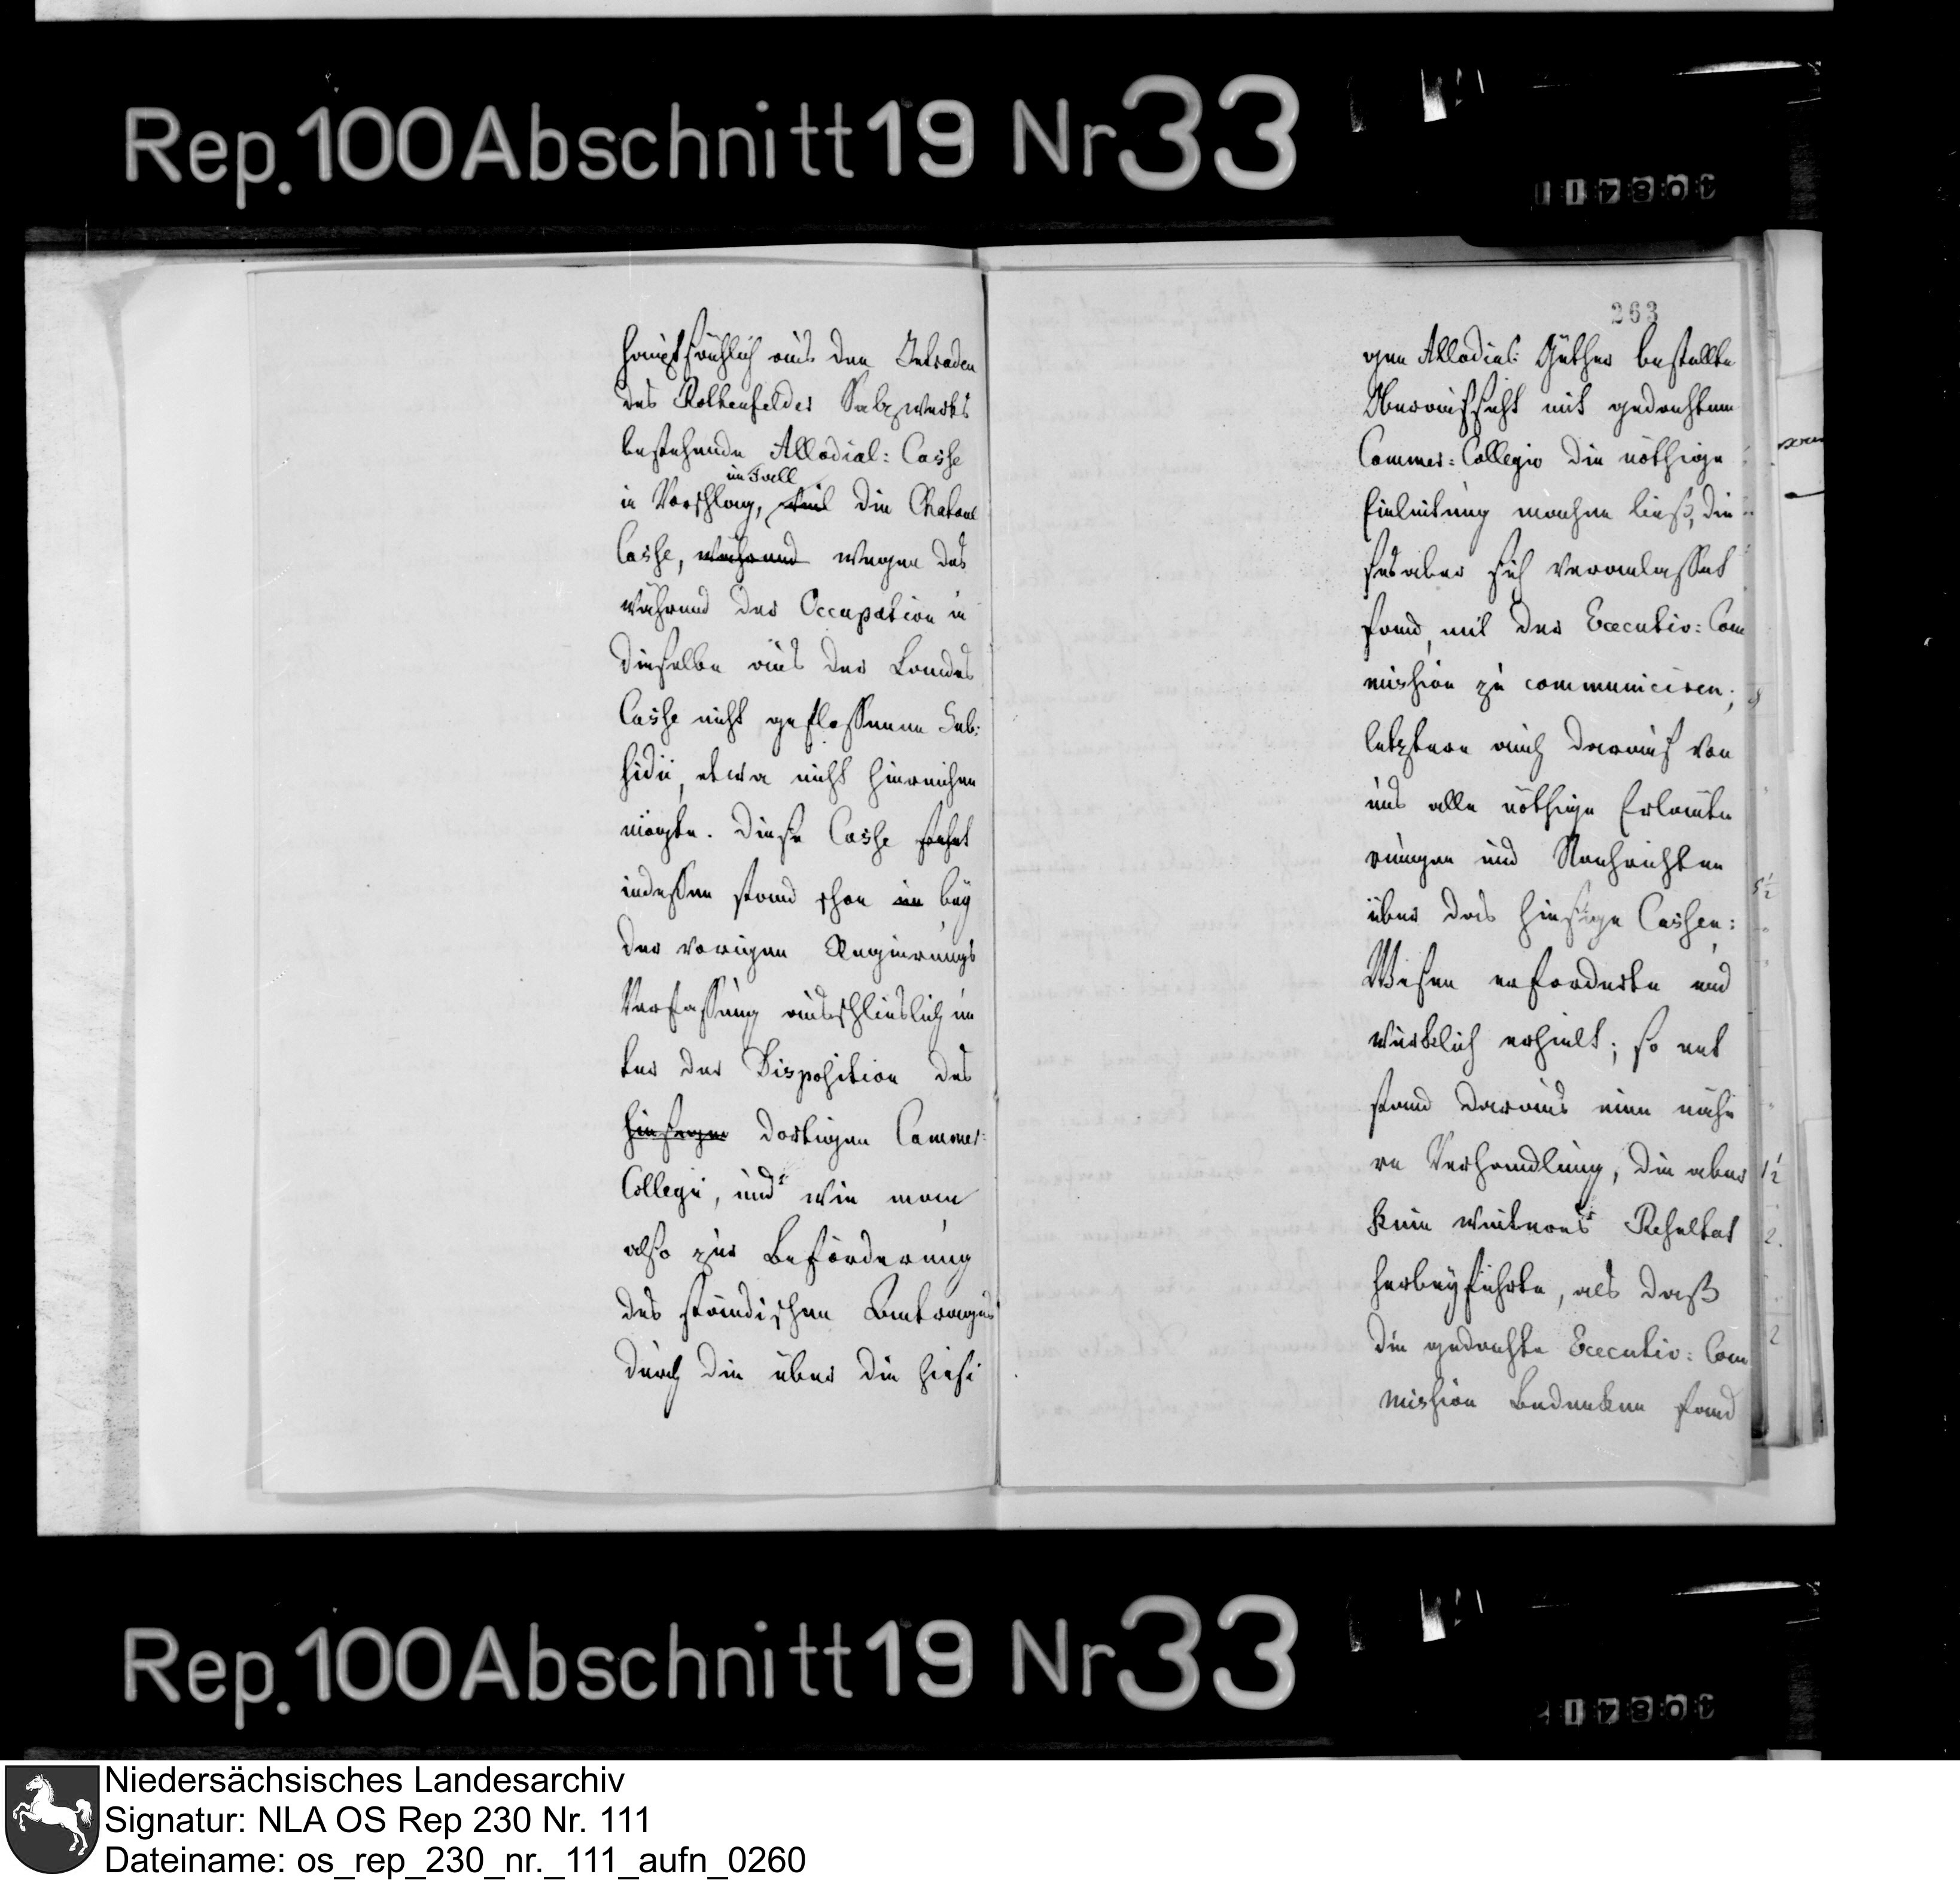 Rep. 100 Abschnitt 19 Nr 33
hauptsächlich aus den Intraden
des Rothenfelder Salzwerks
bestehende Allodial: Casse
im Fall
in Vorschlag, weil die Chatoul
Casse, während wegen des
während der Occupation in
dieselbe aus der Landes
Casse nicht geflossenen Sub:
sidii, etwa nicht hinreichen
mögte. Diese Casse stehet
indessen stand schon in bey
der vorigen Regierungs
Verfassung ausschlieslich un
ter der Disposition des
hiesigen dortigen Cammer:
Collegii, und wie man
also zur Beförderung
des ständischen Antrages
durch die über die hiesi
263
gen Allodial: Güther bestellte
Oberaufsicht mit gedachtem
Cammer: Collegio die nöthige
Einleitung machen ließ, die
ses aber sich veranlasset
fand, mit der Executiv: Com
mission zu communiciren;
letztere auch darauf von
uns alle nöthige Erläute
rungen und Nachrichten
über das hiesige Cassen:
Wesen erforderte und
würklich erhielt; so ent
stand daraus eine nähe
re Verhandlung, die aber
kein weiteres Resultat
herbeyführte, als daß
die gedachte Executiv: Com
mission Bedenken fand
Rep. 100 Abschnitt 19 Nr 33
Niedersächsisches Landesarchiv
Signatur: NLA OS Rep 230 Nr. 111
Dateiname: os_rep_230_nr._111_aufn_0260